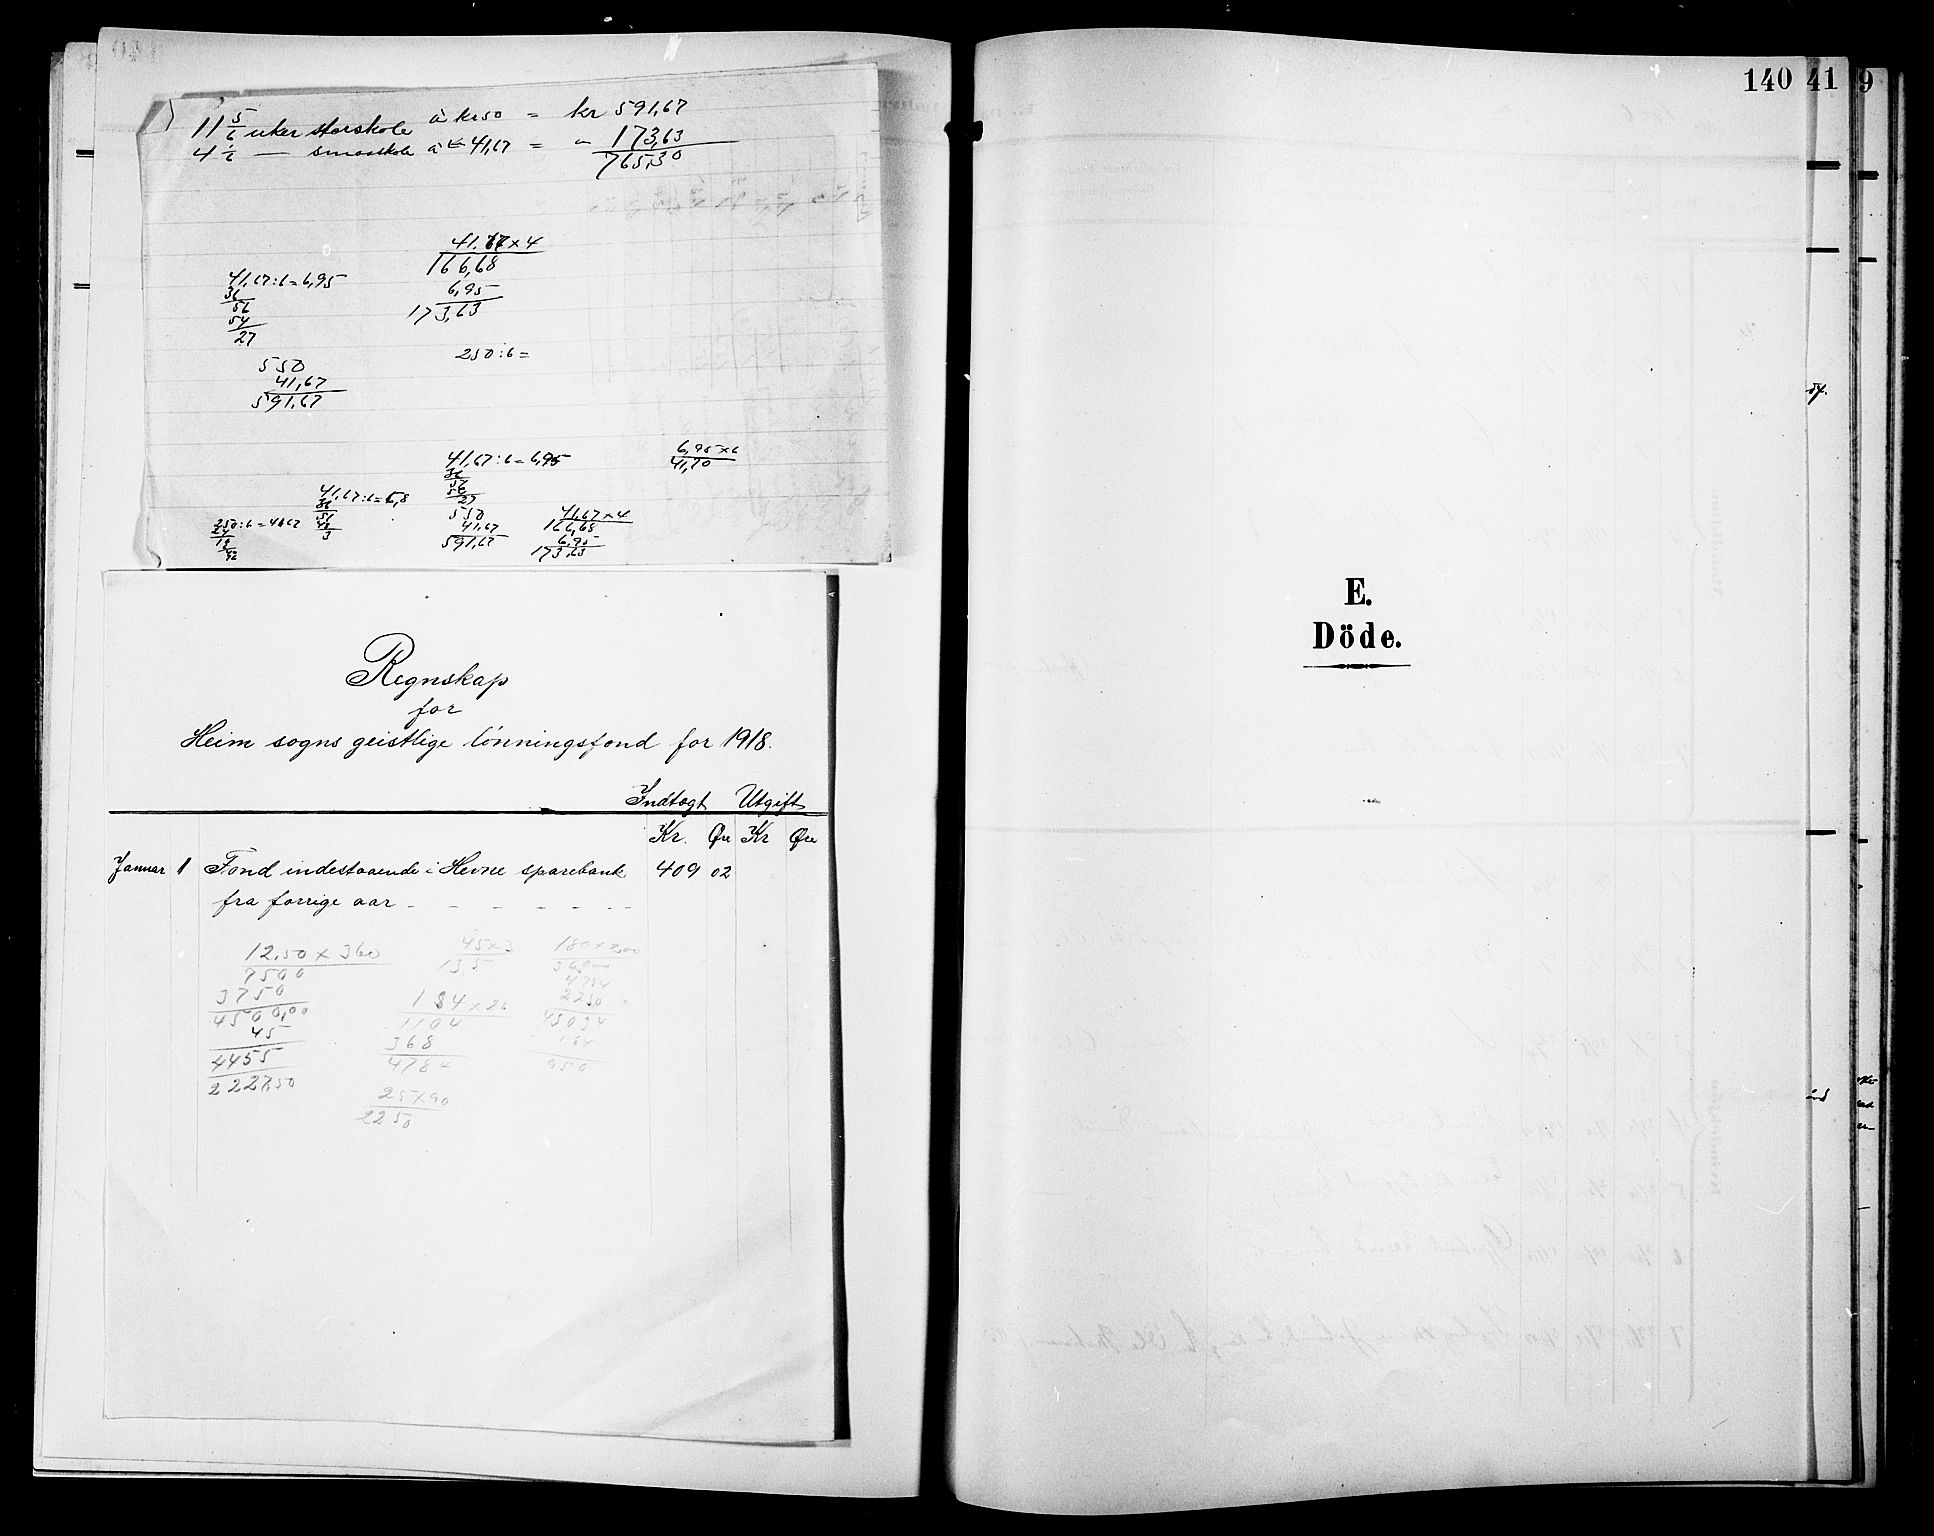 11 5/6 uker storskole à kr 50 = kr 591,67
4 1/6 — smaaskole à " 41,67 = " 173,63
765,30
41.67 x 4
166,68
6,95
173,63
41,67:6=6,95
36
56
54
27
250:6=
550
41,67
591,67
41,67:6=6,95
36
27
550
41,67
591,67
6,95 x 6
41,70
41,67:6=6,8
36
3
250:6=41,67
24
41,67 x 4
166,68
6,95
173,63
Regnskap
for
Heim sogns geistlige lönningsfond for 1918.
Indtægt Utgift
Kr. Øre Kr Øre
Januar 1 Fond indestaaende i Hevne sparebank 409 02
fra forrige aar - - - - - - -
12.50 x 360
7500
3750
4500,00
45
4455
2227,50
45 x 3
135
184 x 26
1104
368
4784
25 x 90
2250
180 x 2,00
4784
2250
184
950
140 41 9
E.
Döde.